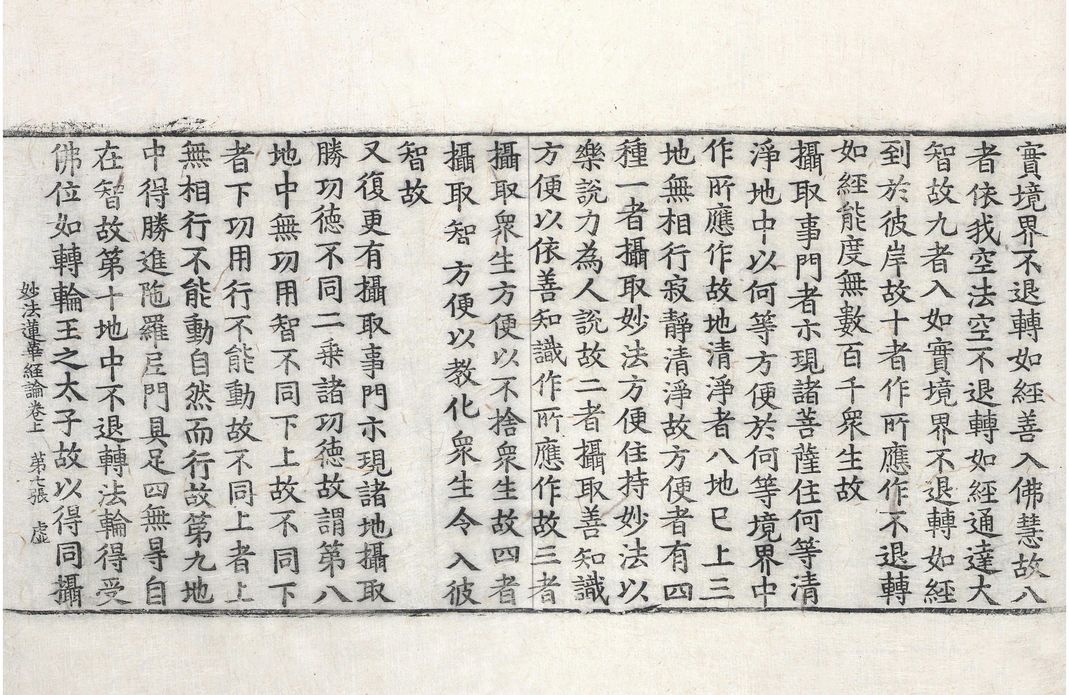 實境界不退轉如經善入佛慧故八
者依我空法空不退轉如經通達大
智故九者入如實境界不退轉如經
到於彼岸故十者作所應作不退轉
如經能度無數百千衆生故
攝取事門者示現諸菩薩住何等清
淨地中以何等方便於何等境界中
作所應作故地清淨者八地已上三
地無相行寂靜清淨故方便者有四
種一者攝取妙法方便住持妙法以
樂說力為人說故二者攝取善知識
方便以依善知識作所應作故三者
攝取衆生方便以不捨衆生故四者
攝取智方便以教化衆生令入彼
智故
又復更有攝取事門示現諸地攝取
勝功德不同二乘諸功德故謂第八
地中無功用智不同下上故不同下
者下功用行不能動故不同上者上
無相行不能動自然而行故第九地
中得勝進陁羅尼門具足四無㝵自
在智故第十地中不退轉法輪得受
佛位如轉輪王之太子故以得同攝
妙法蓮華經論卷上 第七張 虛